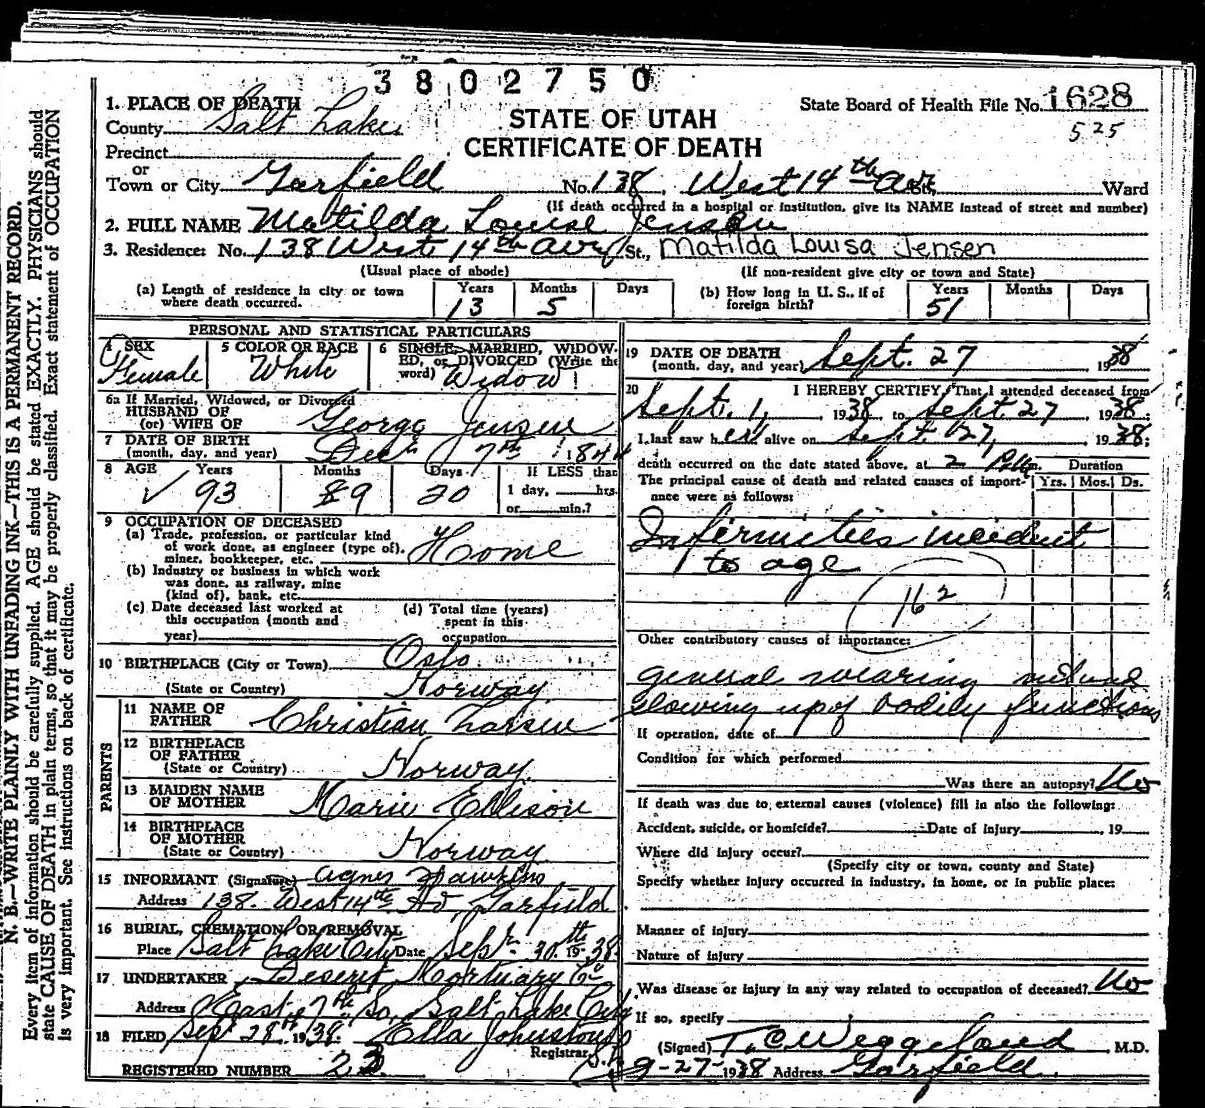 3802750
1. PLACE OF DEATH
County Salt Lake
STATE OF UTAH
CERTIFICATE OF DEATH
State Board of Health File No. 1628
525
Precinct
or
Town or City Garfield No. 138 West 14th Ave St. Ward
(If death occurred in a hospital or institution, give its NAME instead of street and number)
2. FULL NAME Matilda Louise Jensen
3. Residence: No. 138 West 14th Ave St., Matilda Louisa Jensen
(Usual place of abode) (If non-resident give city or town and State)
(a) Length of residence in city or town where death occurred. Years 13 Months 5 Days
(b) How long in U. S., if of foreign birth? Years 51 Months Days
PERSONAL AND STATISTICAL PARTICULARS
4 SEX Female
5 COLOR OR RACE White
6 SINGLE, MARRIED, WIDOWED, or DIVORCED (Write the word) Widow
6a If Married, Widowed, or Divorced
HUSBAND OF
(or) WIFE OF George Jensen
7 DATE OF BIRTH
(month, day, and year) Dec 7th 1844
8 AGE Years Months Days If LESS than
93 9 20 1 day, hrs.
or min.?
9 OCCUPATION OF DECEASED
(a) Trade, profession, or particular kind
of work done, as engineer (type of),
miner, bookkeeper, etc. Home
(b) Industry or business in which work
was done, as railway, mine
(kind of), bank, etc.
(c) Date deceased last worked at
this occupation (month and
year)
(d) Total time (years)
spent in this
occupation
10 BIRTHPLACE (City or Town) Oslo
(State or Country) Norway
PARENTS
11 NAME OF
FATHER Christian Larsen
12 BIRTHPLACE
OF FATHER
(State or Country) Norway
13 MAIDEN NAME
OF MOTHER Marie Ellison
14 BIRTHPLACE
OF MOTHER
(State or Country) Norway
15 INFORMANT (Signature) Agnes Hawkins
Address 138 West 14th Av, Garfield
16 BURIAL, CREMATION OR REMOVAL
Place Salt Lake City Date Sept 30th 1938
17 UNDERTAKER Deseret Mortuary Co
Address East 7th So, Salt Lake City
18 FILED Sept 28th 1938. Ella Johnston
Registrar
REGISTERED NUMBER 23
19 DATE OF DEATH
(month, day, and year) Sept. 27 1938
20 I HEREBY CERTIFY, That I attended deceased from
Sept. 1, 1938 to Sept 27 1938;
I last saw her alive on Sept 27, 1938;
death occurred on the date stated above, at 2 P.m. Duration
The principal cause of death and related causes of importance were as follows: Yrs. Mos. Ds.
Infirmities incident
to age
162
Other contributory causes of importance:
general wearing out and
slowing up of bodily functions
If operation, date of
Condition for which performed
Was there an autopsy? No
If death was due to external causes (violence) fill in also the following:
Accident, suicide, or homicide? Date of injury 19
Where did injury occur?
(Specify city or town, county and State)
Specify whether injury occurred in industry, in home, or in public place:
Manner of injury
Nature of injury
Was disease or injury in any way related to occupation of deceased? No
If so, specify
(Signed) T. C. Weggeland M.D.
9-27-1938 Address Garfield
N. B.—WRITE PLAINLY WITH UNFADING INK—THIS IS A PERMANENT RECORD.
Every item of information should be carefully supplied. AGE should be stated EXACTLY. PHYSICIANS should
state CAUSE OF DEATH in plain terms, so that it may be properly classified. Exact statement of OCCUPATION
is very important. See instructions on back of certificate.